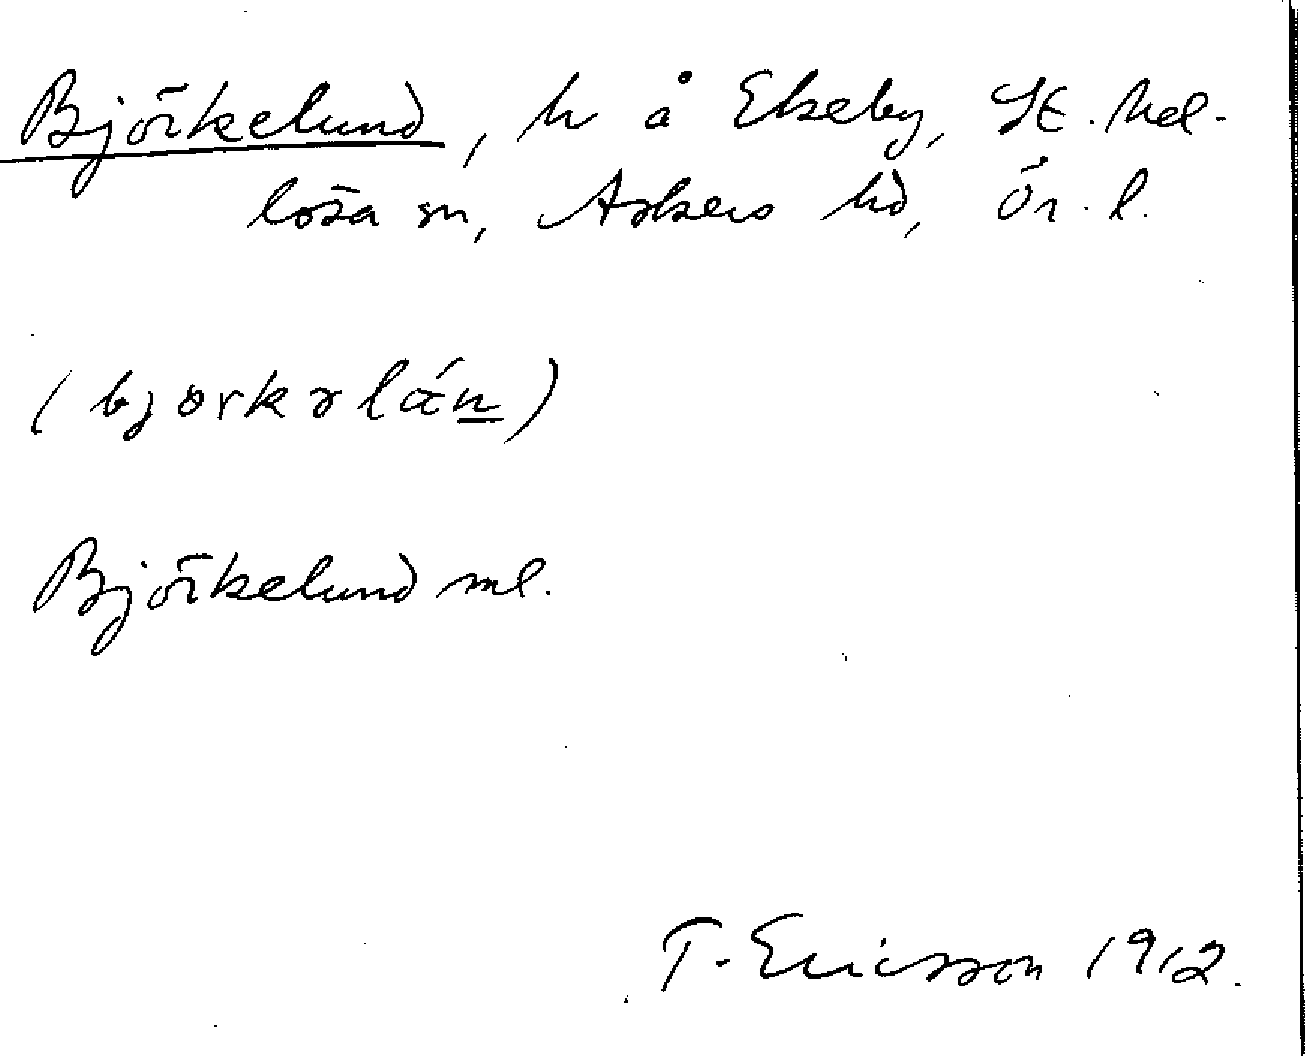 Björkelund, h å Ekeby, St. Mel-
lösa sn, Askers hd, Ör. l.
Björkelund ml.
T. Ericsson 1912.